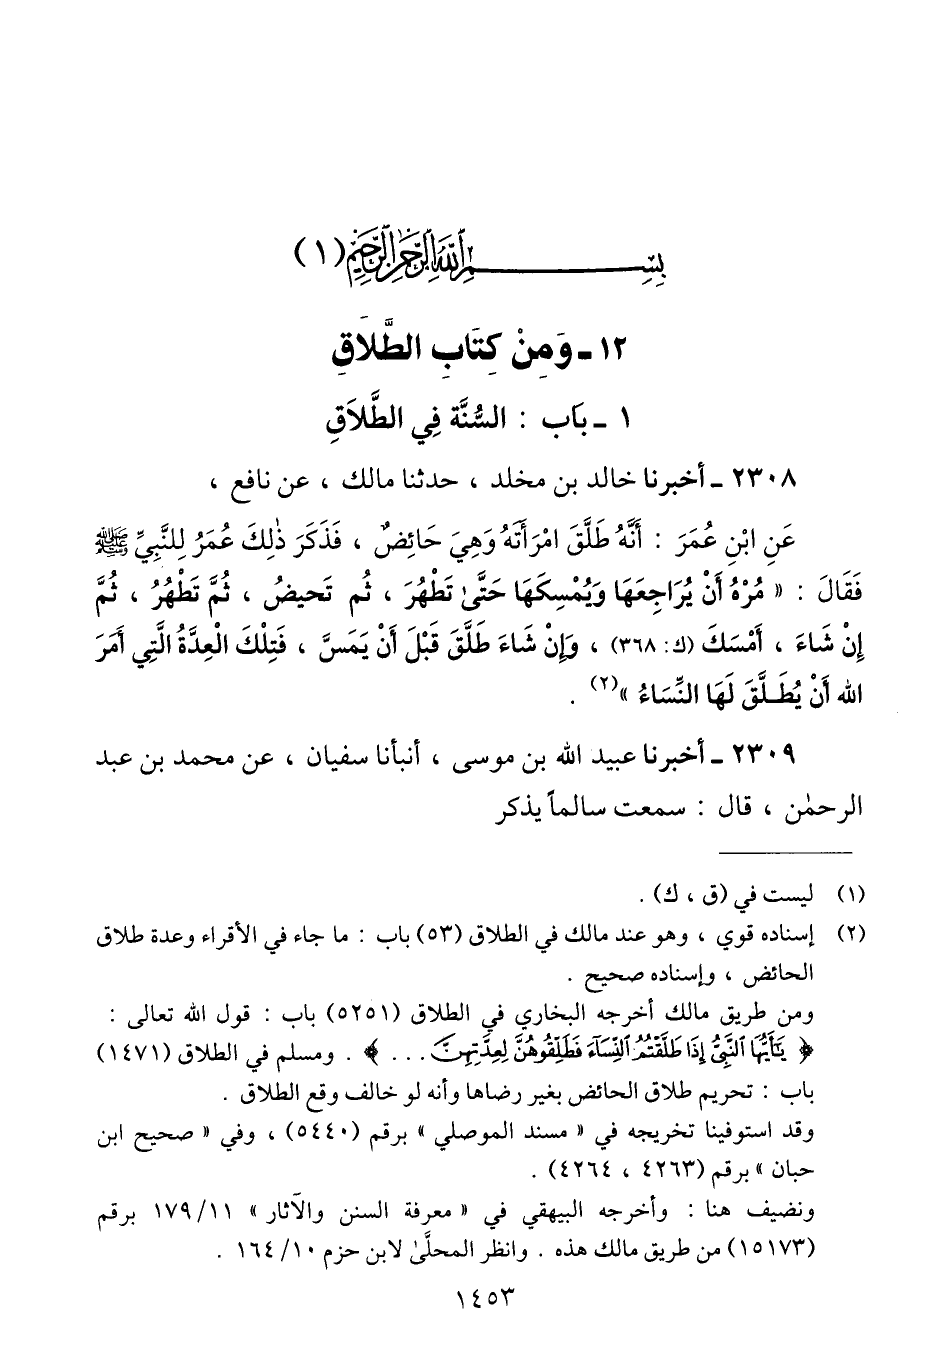 بِسْمِ ٱللَّهِ ٱلرَّحْمَٰنِ ٱلرَّحِيمِ (١)
١٢ ـ وَمِنْ كِتَابِ الطَّلَاقِ
١ ـ بَاب : السُّنَّة فِي الطَّلَاقِ
٢٣٠٨ ـ أخبرنا خالد بن مخلد ، حدثنا مالك ، عن نافع ،
عَنِ ابْنِ عُمَرَ : أَنَّهُ طَلَّقَ امْرَأَتَهُ وَهِيَ حَائِضٌ ، فَذَكَرَ ذٰلِكَ عُمَرُ لِلنَّبِيِّ ﷺ
فَقَالَ : « مُرْهُ أَنْ يُرَاجِعَهَا وَيُمْسِكَهَا حَتَّىٰ تَطْهُرَ ، ثُم تَحيضُ ، ثُمَّ تَطْهُرُ ، ثُمَّ
إِنْ شَاءَ ، أَمْسَكَ (ك: ٣٦٨) ، وَإِنْ شَاءَ طَلَّقَ قَبْلَ أَنْ يَمَسَّ ، فَتِلْكَ الْعِدَّةُ الَّتِي أَمَرَ
الله أَنْ يُطَلَّقَ لَهَا النِّسَاءُ »(٢) .
٢٣٠٩ ـ أخبرنا عبيد الله بن موسى ، أنبأنا سفيان ، عن محمد بن عبد
الرحمٰن ، قال : سمعت سالماً يذكر
(١) ليست في (ق ، ك) .
(٢) إسناده قوي ، وهو عند مالك في الطلاق (٥٣) باب : ما جاء في الأقراء وعدة طلاق
الحائض ، وإسناده صحيح .
ومن طريق مالك أخرجه البخاري في الطلاق (٥٢٥١) باب : قول الله تعالى :
﴿ يَٰٓأَيُّهَا ٱلنَّبِيُّ إِذَا طَلَّقْتُمُ ٱلنِّسَآءَ فَطَلِّقُوهُنَّ لِعِدَّتِهِنَّ ... ﴾ . ومسلم في الطلاق (١٤٧١)
باب : تحريم طلاق الحائض بغير رضاها وأنه لو خالف وقع الطلاق .
وقد استوفينا تخريجه في « مسند الموصلي » برقم (٥٤٤٠) ، وفي « صحيح ابن
حبان » برقم (٤٢٦٣ ، ٤٢٦٤) .
ونضيف هنا : وأخرجه البيهقي في « معرفة السنن والآثار » ١٧٩/١١ برقم
(١٥١٧٣) من طريق مالك هذه . وانظر المحلَّىٰ لابن حزم ١٦٤/١٠ .
١٤٥٣